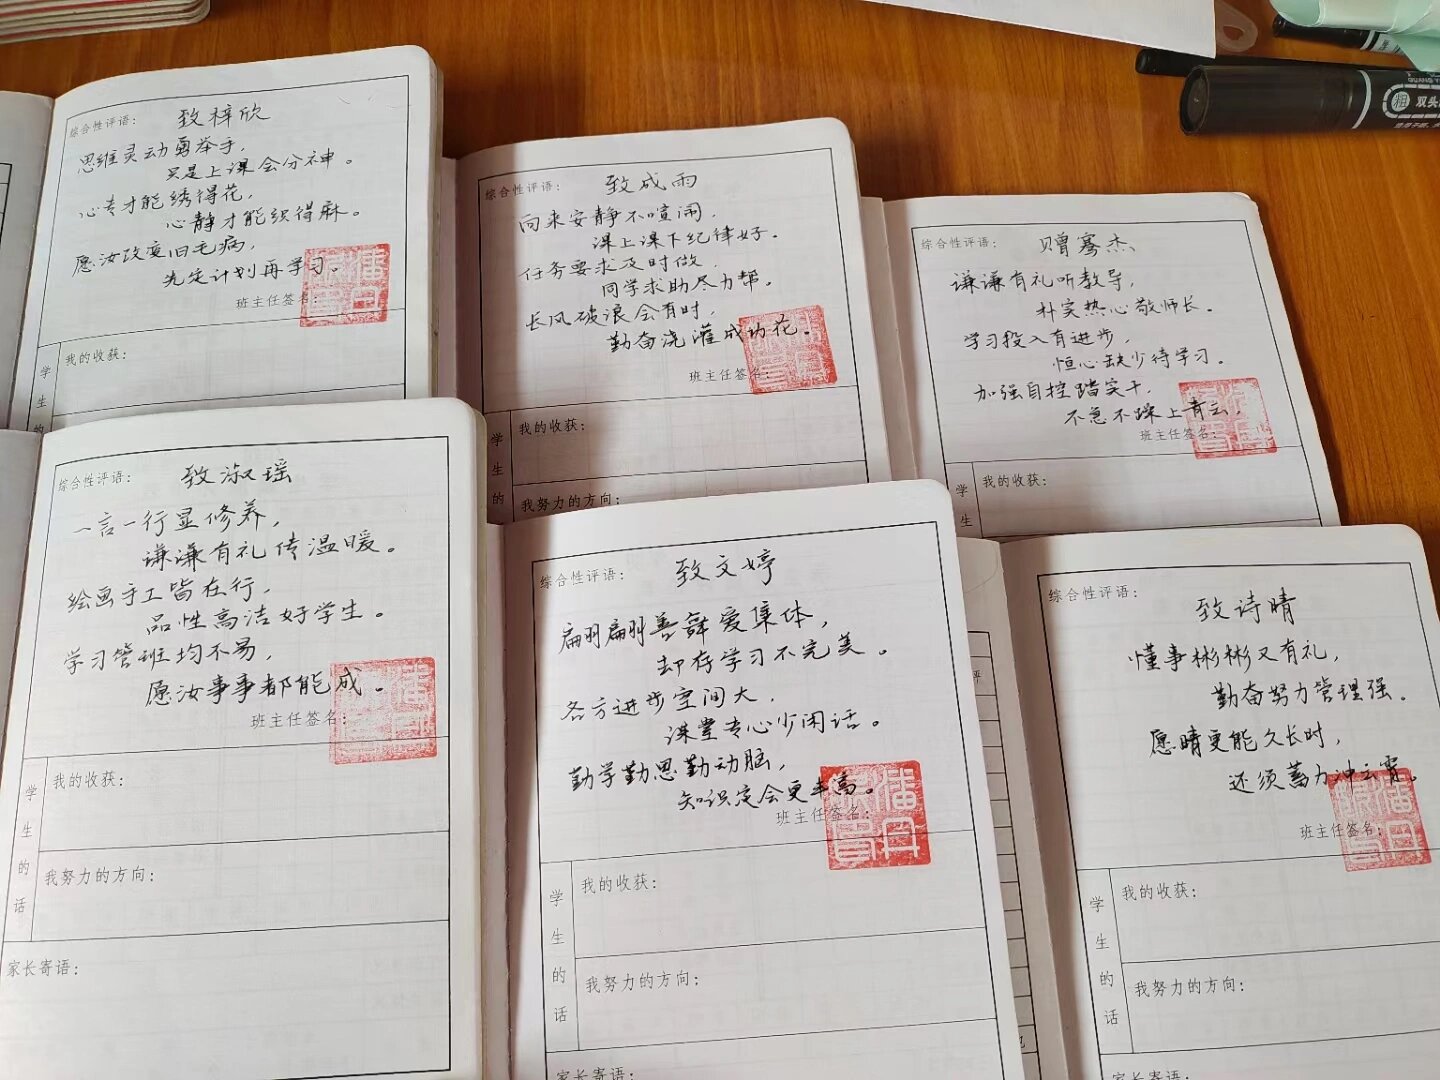 综合性评语：
致梓欣
思维灵动勇举手，
只是上课会分神。
心专才能绣得花，
心静才能织得麻。
愿汝改变旧毛病，
先定计划再学习。
班主任签名：
学生的
我的收获：
综合性评语：
致成雨
向来安静不喧闹，
课上课下纪律好。
任务要求及时做，
同学求助尽力帮。
长风破浪会有时，
勤奋浇灌成功花。
班主任签名：
学生的
我的收获：
我努力的方向：
综合性评语：
赠骞杰
谦谦有礼听教导，
朴实热心敬师长。
学习投入有进步，
恒心缺少待学习。
加强自控踏实干，
不急不躁上青云，
班主任签名：
学生
我的收获：
综合性评语：
致淑瑶
一言一行显修养，
谦谦有礼传温暖。
绘画手工皆在行，
品性高洁好学生。
学习管班均不易，
愿汝事事都能成。
班主任签名：
学生的话
我的收获：
我努力的方向：
家长寄语：
综合性评语：
致文婷
翩翩善舞爱集体，
却存学习不完美。
各方进步空间大，
课堂专心少闲话。
勤学勤思勤动脑，
知识定会更丰富。
班主任签名：
学生的话
我的收获：
我努力的方向：
家长寄语：
综合性评语：
致诗晴
懂事彬彬又有礼，
勤奋努力管理强。
愿晴更能久长时，
还须蓄力冲云霄。
班主任签名：
学生的话
我的收获：
我努力的方向：
家长寄语：
双头